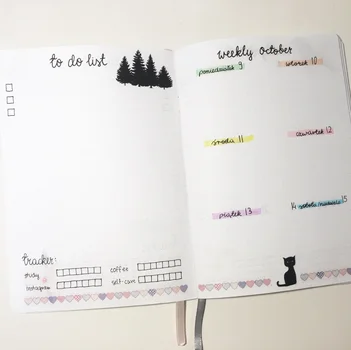 to do list
tracker:
study
coffee
instagram
self-care
weekly october
poniedziałek 9
wtorek 10
środa 11
czwartek 12
piątek 13
14 sobota niedziela 15